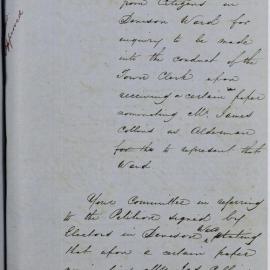 from Citizens in
Denison Ward for
enquiry to be made
into the conduct of the
Town Clerk upon
receiving a certain paper
nominating Mr. James
Collins as Alderman
for the to represent that
Ward
Your Committee in referring
to the Petition signed by
Electors in Denison Ward stating
that upon a certain paper